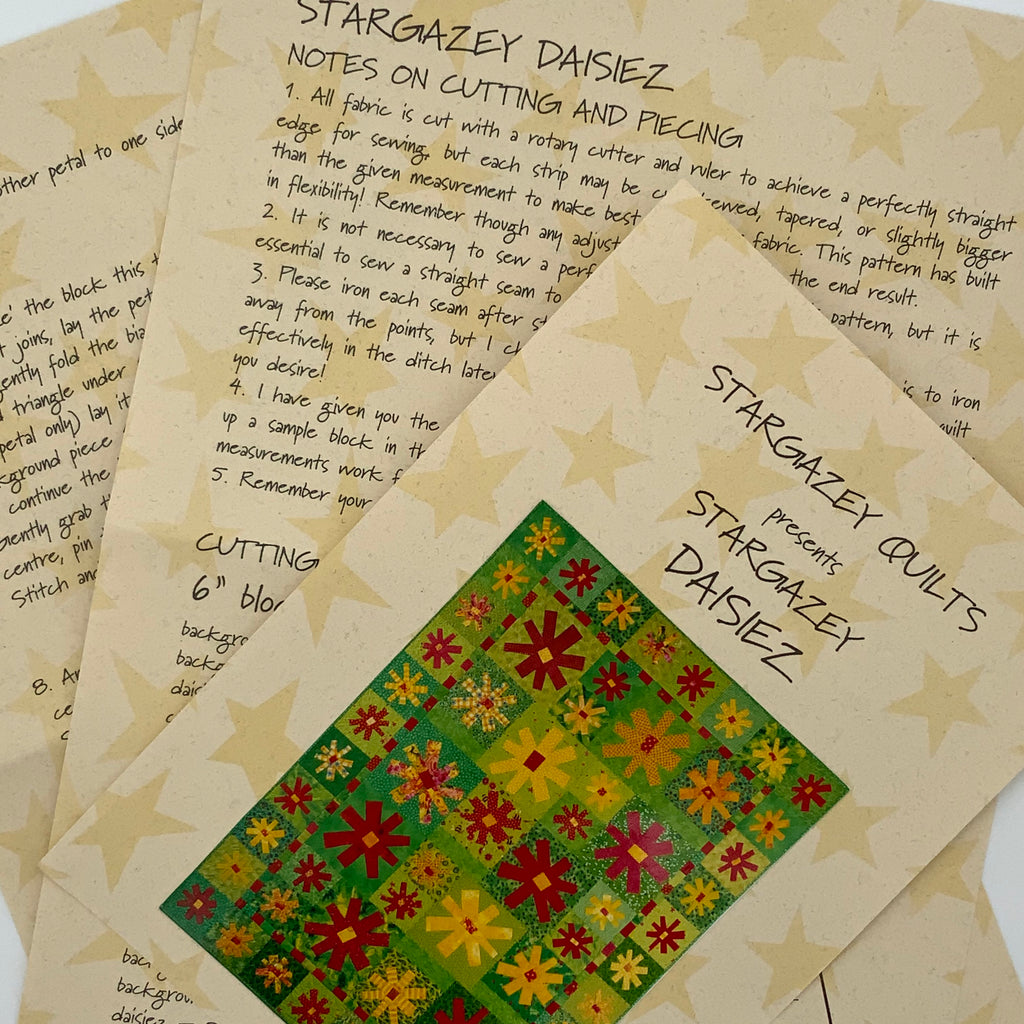 STARGAZEY DAISIEZ
NOTES ON CUTTING AND PIECING
1. All fabric is cut with a rotary cutter and ruler to achieve a perfectly straight
edge for sewing, but each strip may be cut skewed, tapered, or slightly bigger
than the given measurement to make best fabric. This pattern has built
in flexibility! Remember though any adjust the end result.
2. It is not necessary to sew a perf pattern, but it is
essential to sew a straight seam to
3. Please iron each seam after is to iron
away from the points, but I quilt
effectively in the ditch late
you desire!
4. I have given you the
up a sample block in th
measurements work
5. Remember your
CUTTING
6" bloc
backgro
back
daisi
back
backgrou
daisiez
other petal to one side
the block this
joins, lay the pet
gently fold the bia
triangle under
petal only) lay it
kground piece
continue the
Gently grab
centre, pin
Stitch and
8.
STARGAZEY QUILTS
presents
STARGAZEY
DAISIEZ